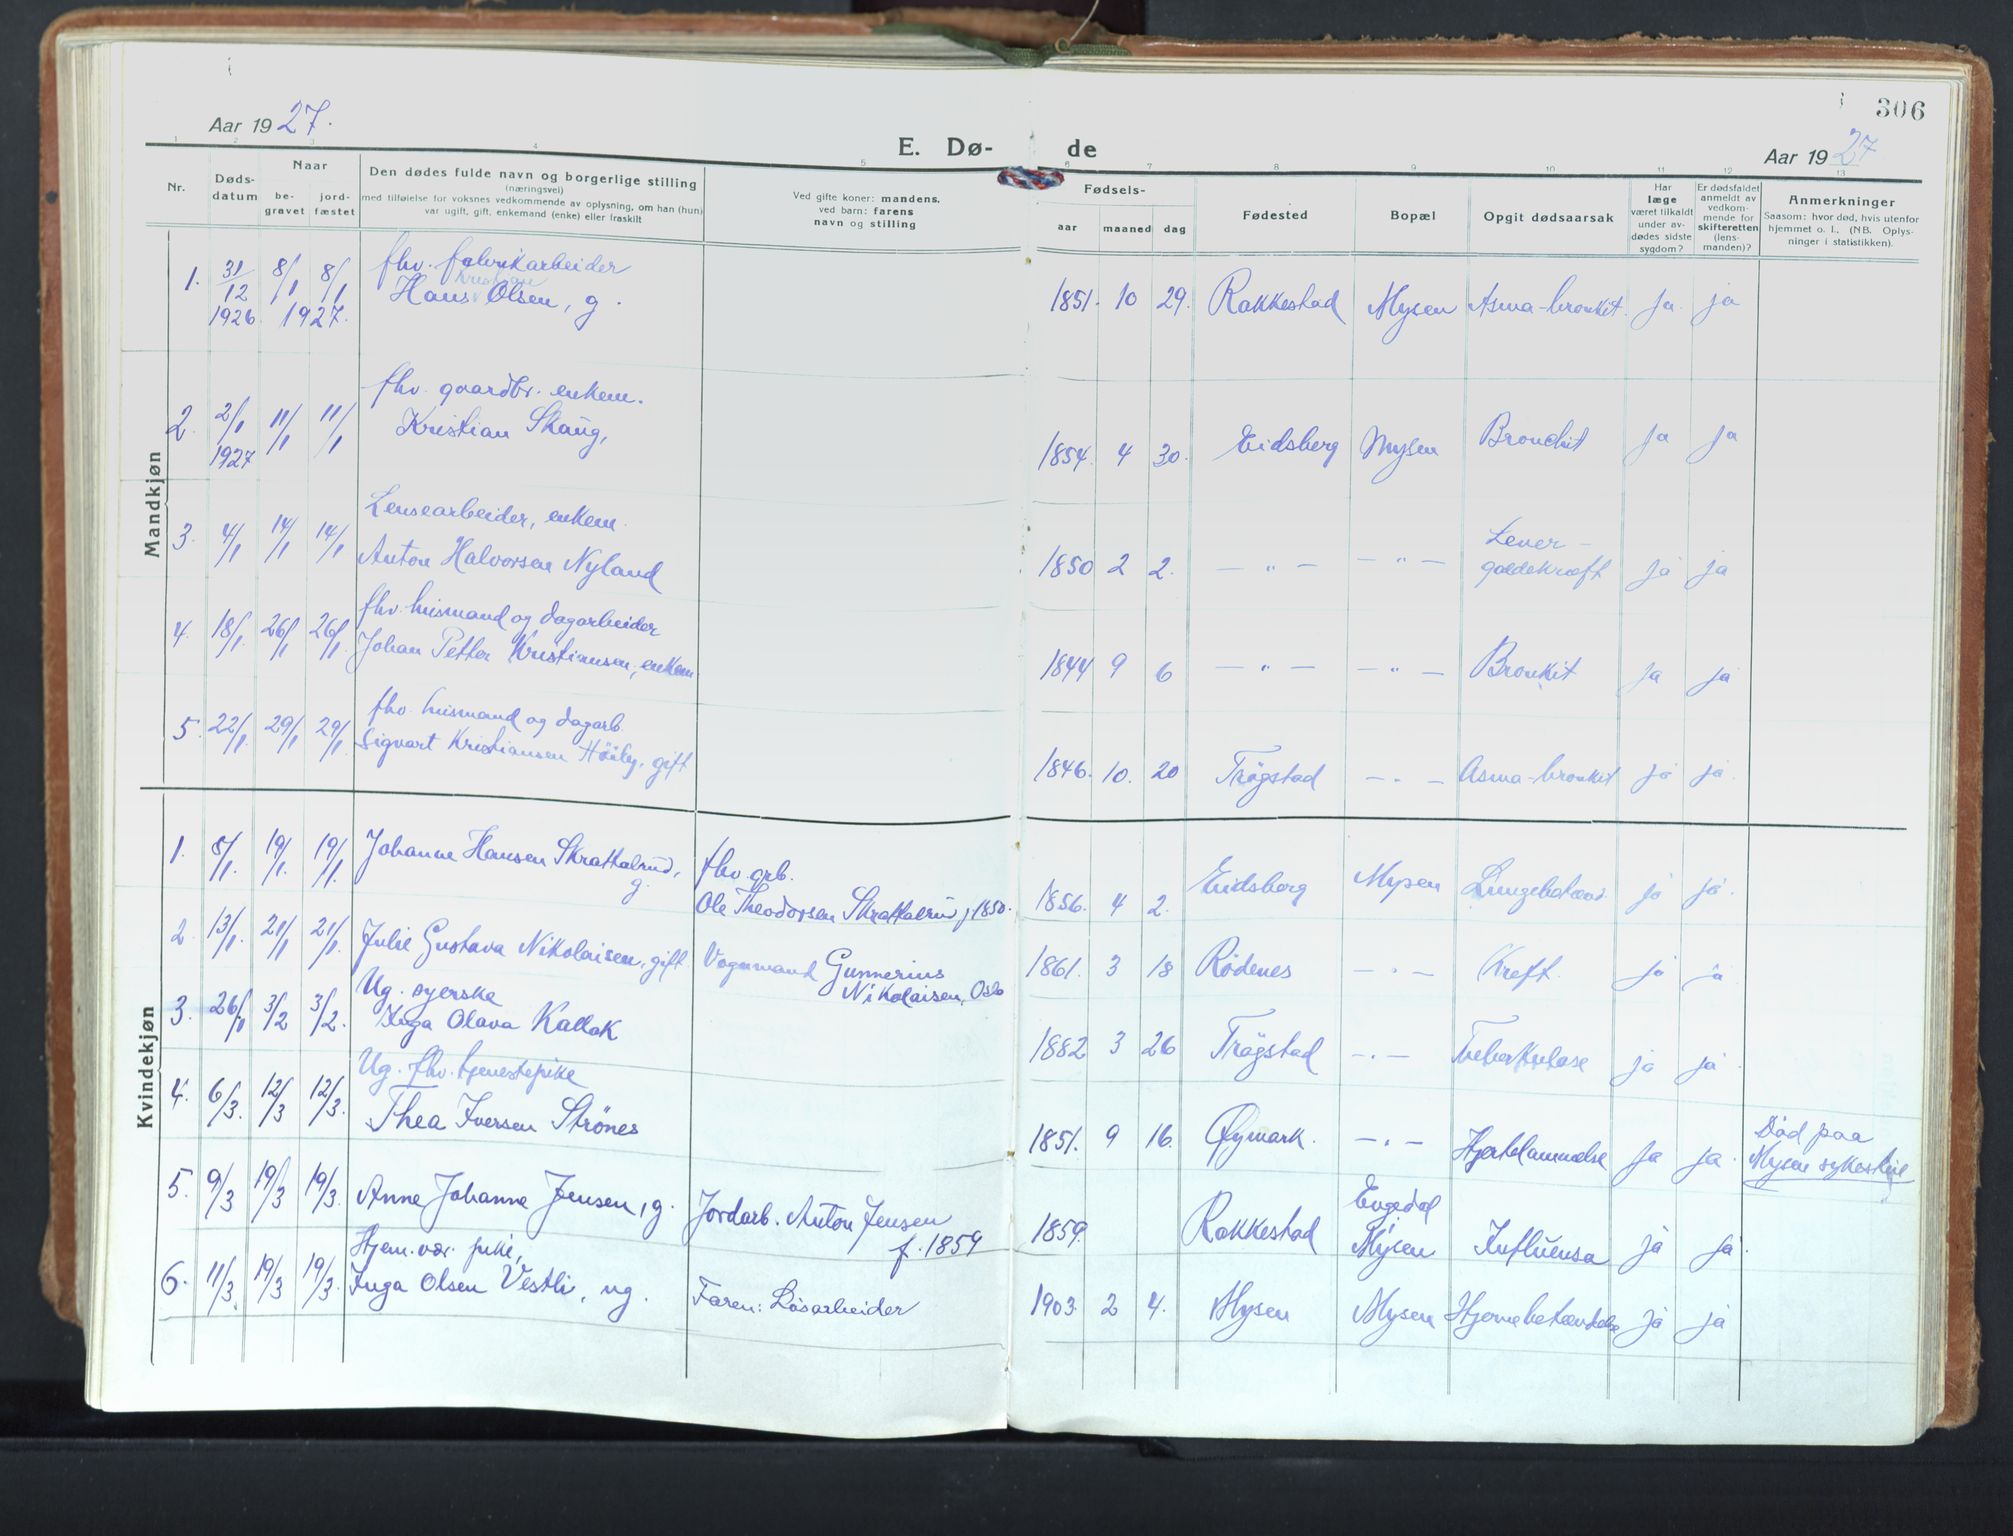 306
Aar 1927.
E. Dø-
de
Aar 1927
1 2 3 4 5 6 7 8 9 10 11 12 13
Nr.
Døds-
datum
Naar
be-
gravet
jord-
fæstet
Den dødes fulde navn og borgerlige stilling
(næringsvei)
med tilføielse for voksnes vedkommende av oplysning, om han (hun)
var ugift, gift, enkemand (enke) eller fraskilt
Ved gifte koner: mandens.
ved barn: farens
navn og stilling
Fødsels-
aar
maaned
dag
Fødested
Bopæl
Opgit dødsaarsak
Har
læge
været tilkaldt
under av-
dødes sidste
sygdom?
Er dødsfaldet
anmeldt av
vedkom-
mende for
skifteretten
(lens-
manden)?
Anmerkninger
Saasom: hvor død, hvis utenfor
hjemmet o. l.. (NB. Oplys-
ninger i statistikken).
Mandkjøn
1. 31/12 1926. 8/1 8/1 1927.
fhv. fabrikarbeider
Kristian
Hans Olsen, g.
1851. 10 29. Rakkestad Mysen Asma-bronkit. ja. ja
2. 2/1 1927 11/1 11/1
fhv. gaardbr. enkem.
Kristian Skaug,
1854. 4 30. Eidsberg Mysen Bronchit ja ja
3. 4/1 14/1 14/1
Lensearbeider, enkem.
Anton Halvorsen Nyland
1850 2 2. — " — — " — Lever-
galdekræft ja ja
4. 18/1. 26/1 26/1.
fhv. husmand og dagarbeider
Johan Petter Kristiansen, enkem.
1844 9 6 — " — — " — Bronkit ja ja
5. 22/1. 29/1 29/1.
fhv. husmand og dagarb.
Sigvart Kristiansen Höiby, gift
1846. 10. 20 Trögstad — " — Asma-bronkit ja ja.
Kvindekjøn
1. 8/1. 19/1. 19/1.
Johanne Hansen Skrattalrud,
g.
fhv. grb.
Ole Theodorsen Skrattalrud f 1850.
1856. 4 2. Eidsberg Mysen ja ja.
2. 13/1. 21/1 21/1.
Julie Gustava Nikolaisen, gift.
Vognmand Gunnerius
Nikolaisen, Oslo
1861. 3 18 Rödenes — " — Kreft. ja ja
3. 26/1 3/2 3/2.
Ug. syerske
Inga Olava Kallak
1882 3 26 Trögstad — " — Tuberkulose ja ja.
4. 6/3. 12/3 12/3.
Ug. fhv. tjenestepike
Thea Iversen Strönes
1851. 9 16. Øymark. — " — Hjertelammelse ja ja.
Död paa
Mysen
5. 9/3 19/3 19/3.
Anne Johanne Jensen, g.
Jordarb. Anton Jensen
f. 1859
1859. Rakkestad Engedal
Mysen Influensa ja ja.
6. 11/3. 19/3 19/3.
Hjem. vær. pike,
Inga Olsen Vestli, ug.
Faren: Lösarbeider
1903. 2 4. Mysen Mysen Hjernebetændelse ja ja